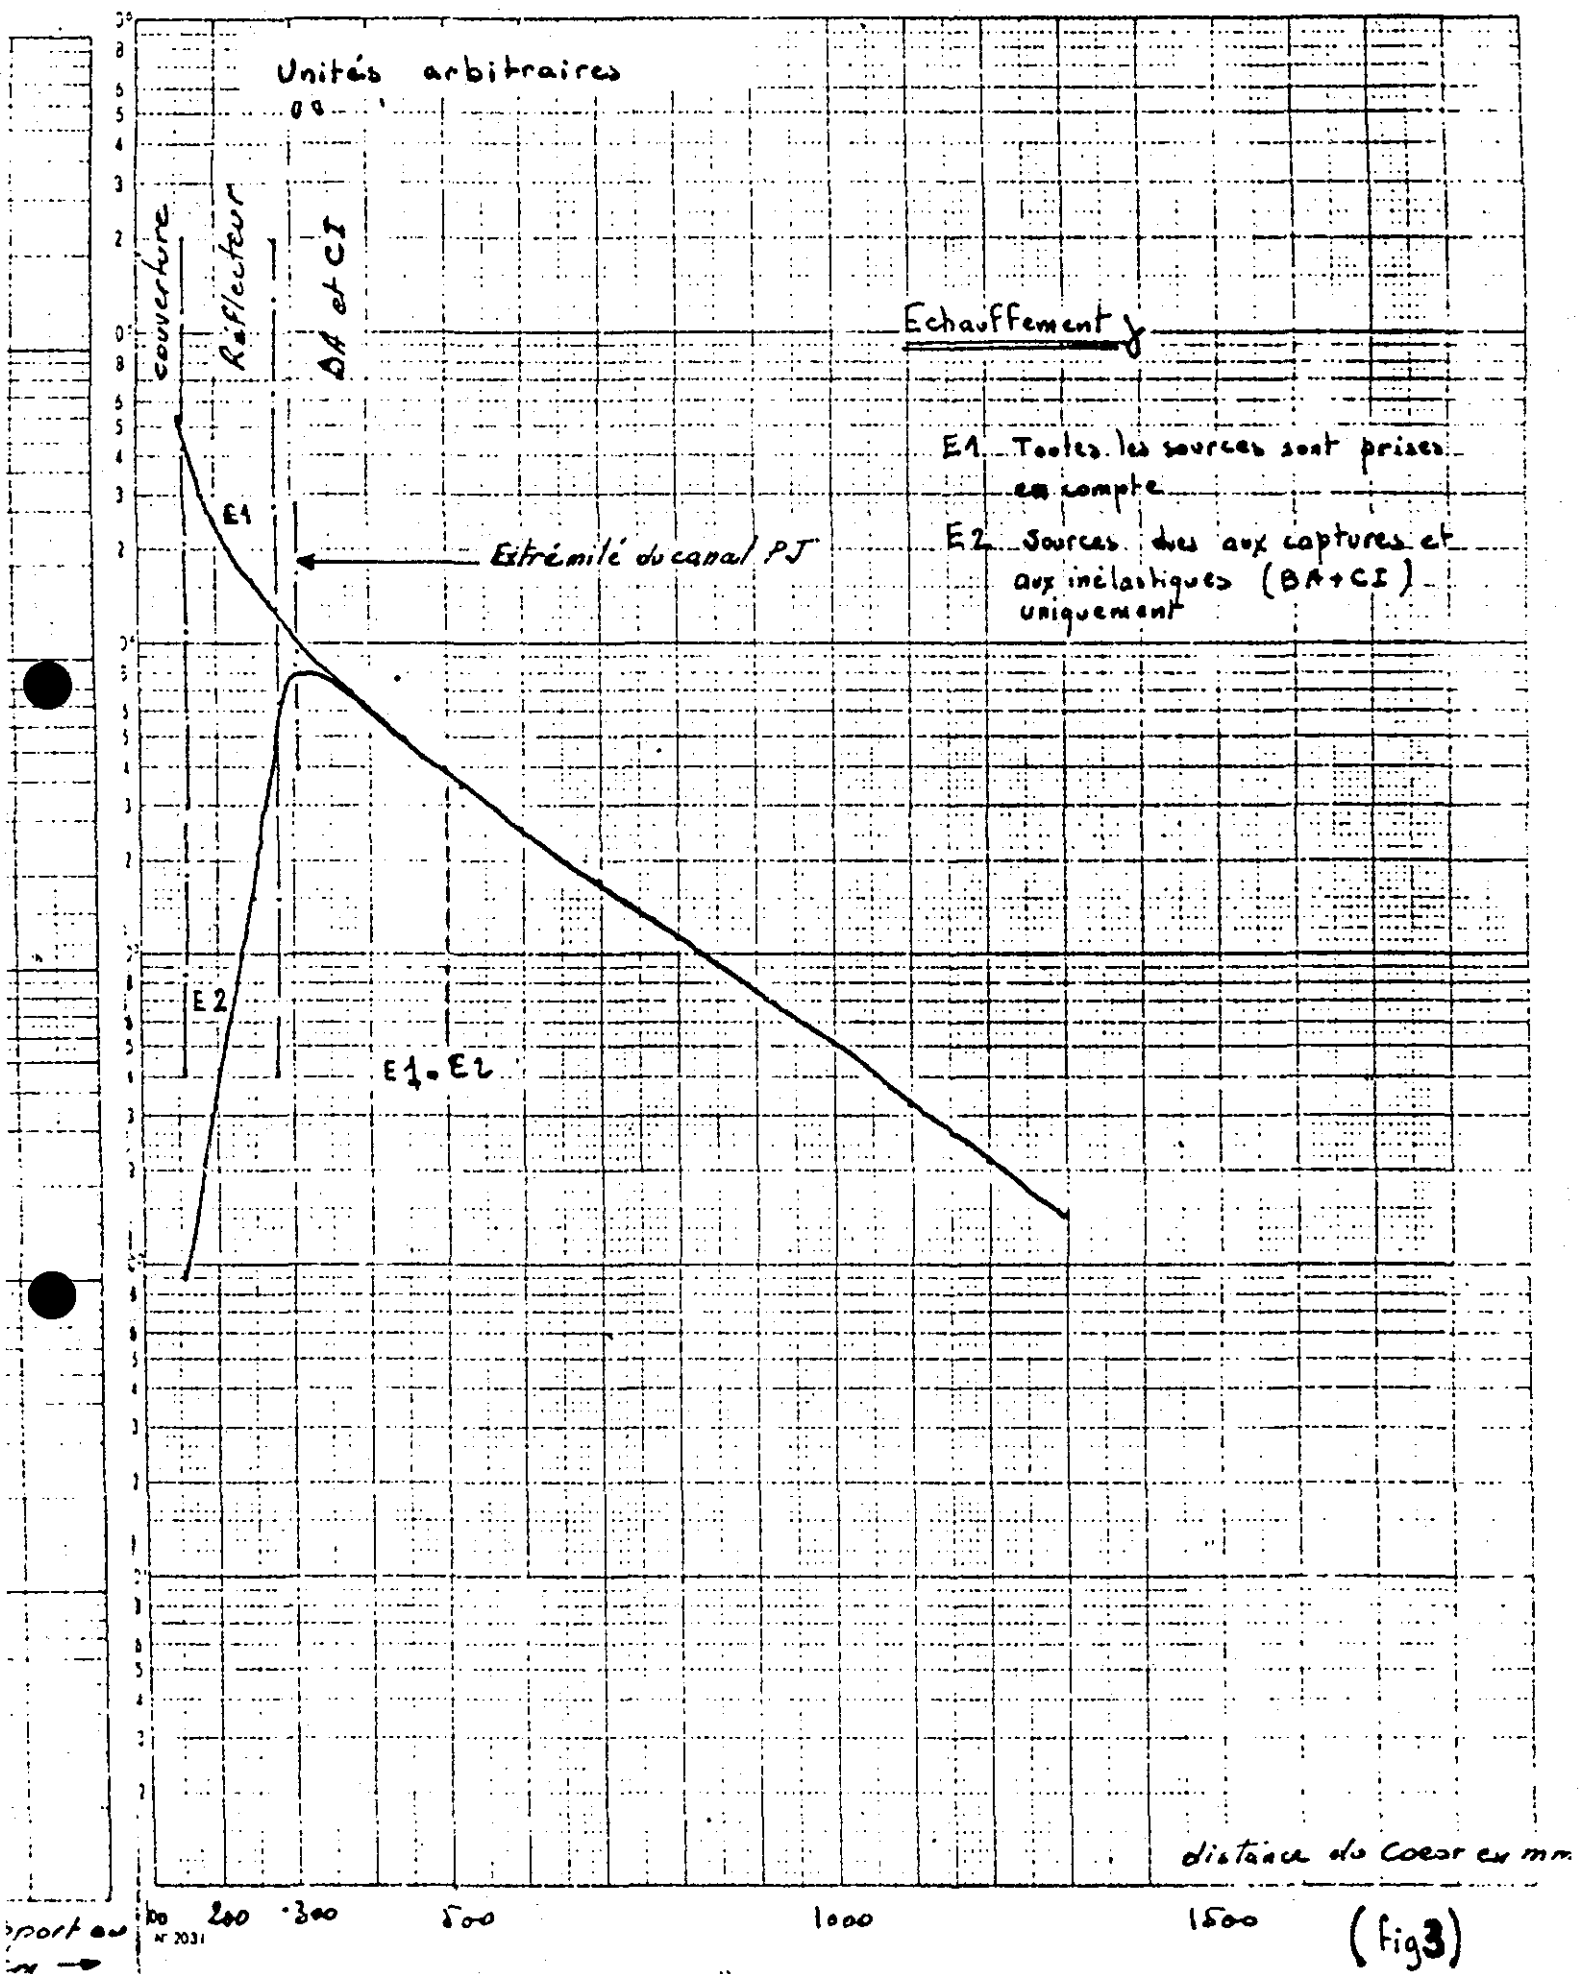 Unités arbitraires
couverture
Réflecteur
BA et CI
Echauffement γ
E1 Toutes les sources sont prises
en compte
E2 Sources dues aux captures et
aux inélastiques (BA+CI)
uniquement
E1
Extrémité du canal PJ
E2
E1 = E2
distance du Coeur en mm
100 200 300 500 1000 1500
N° 2031
(fig3)